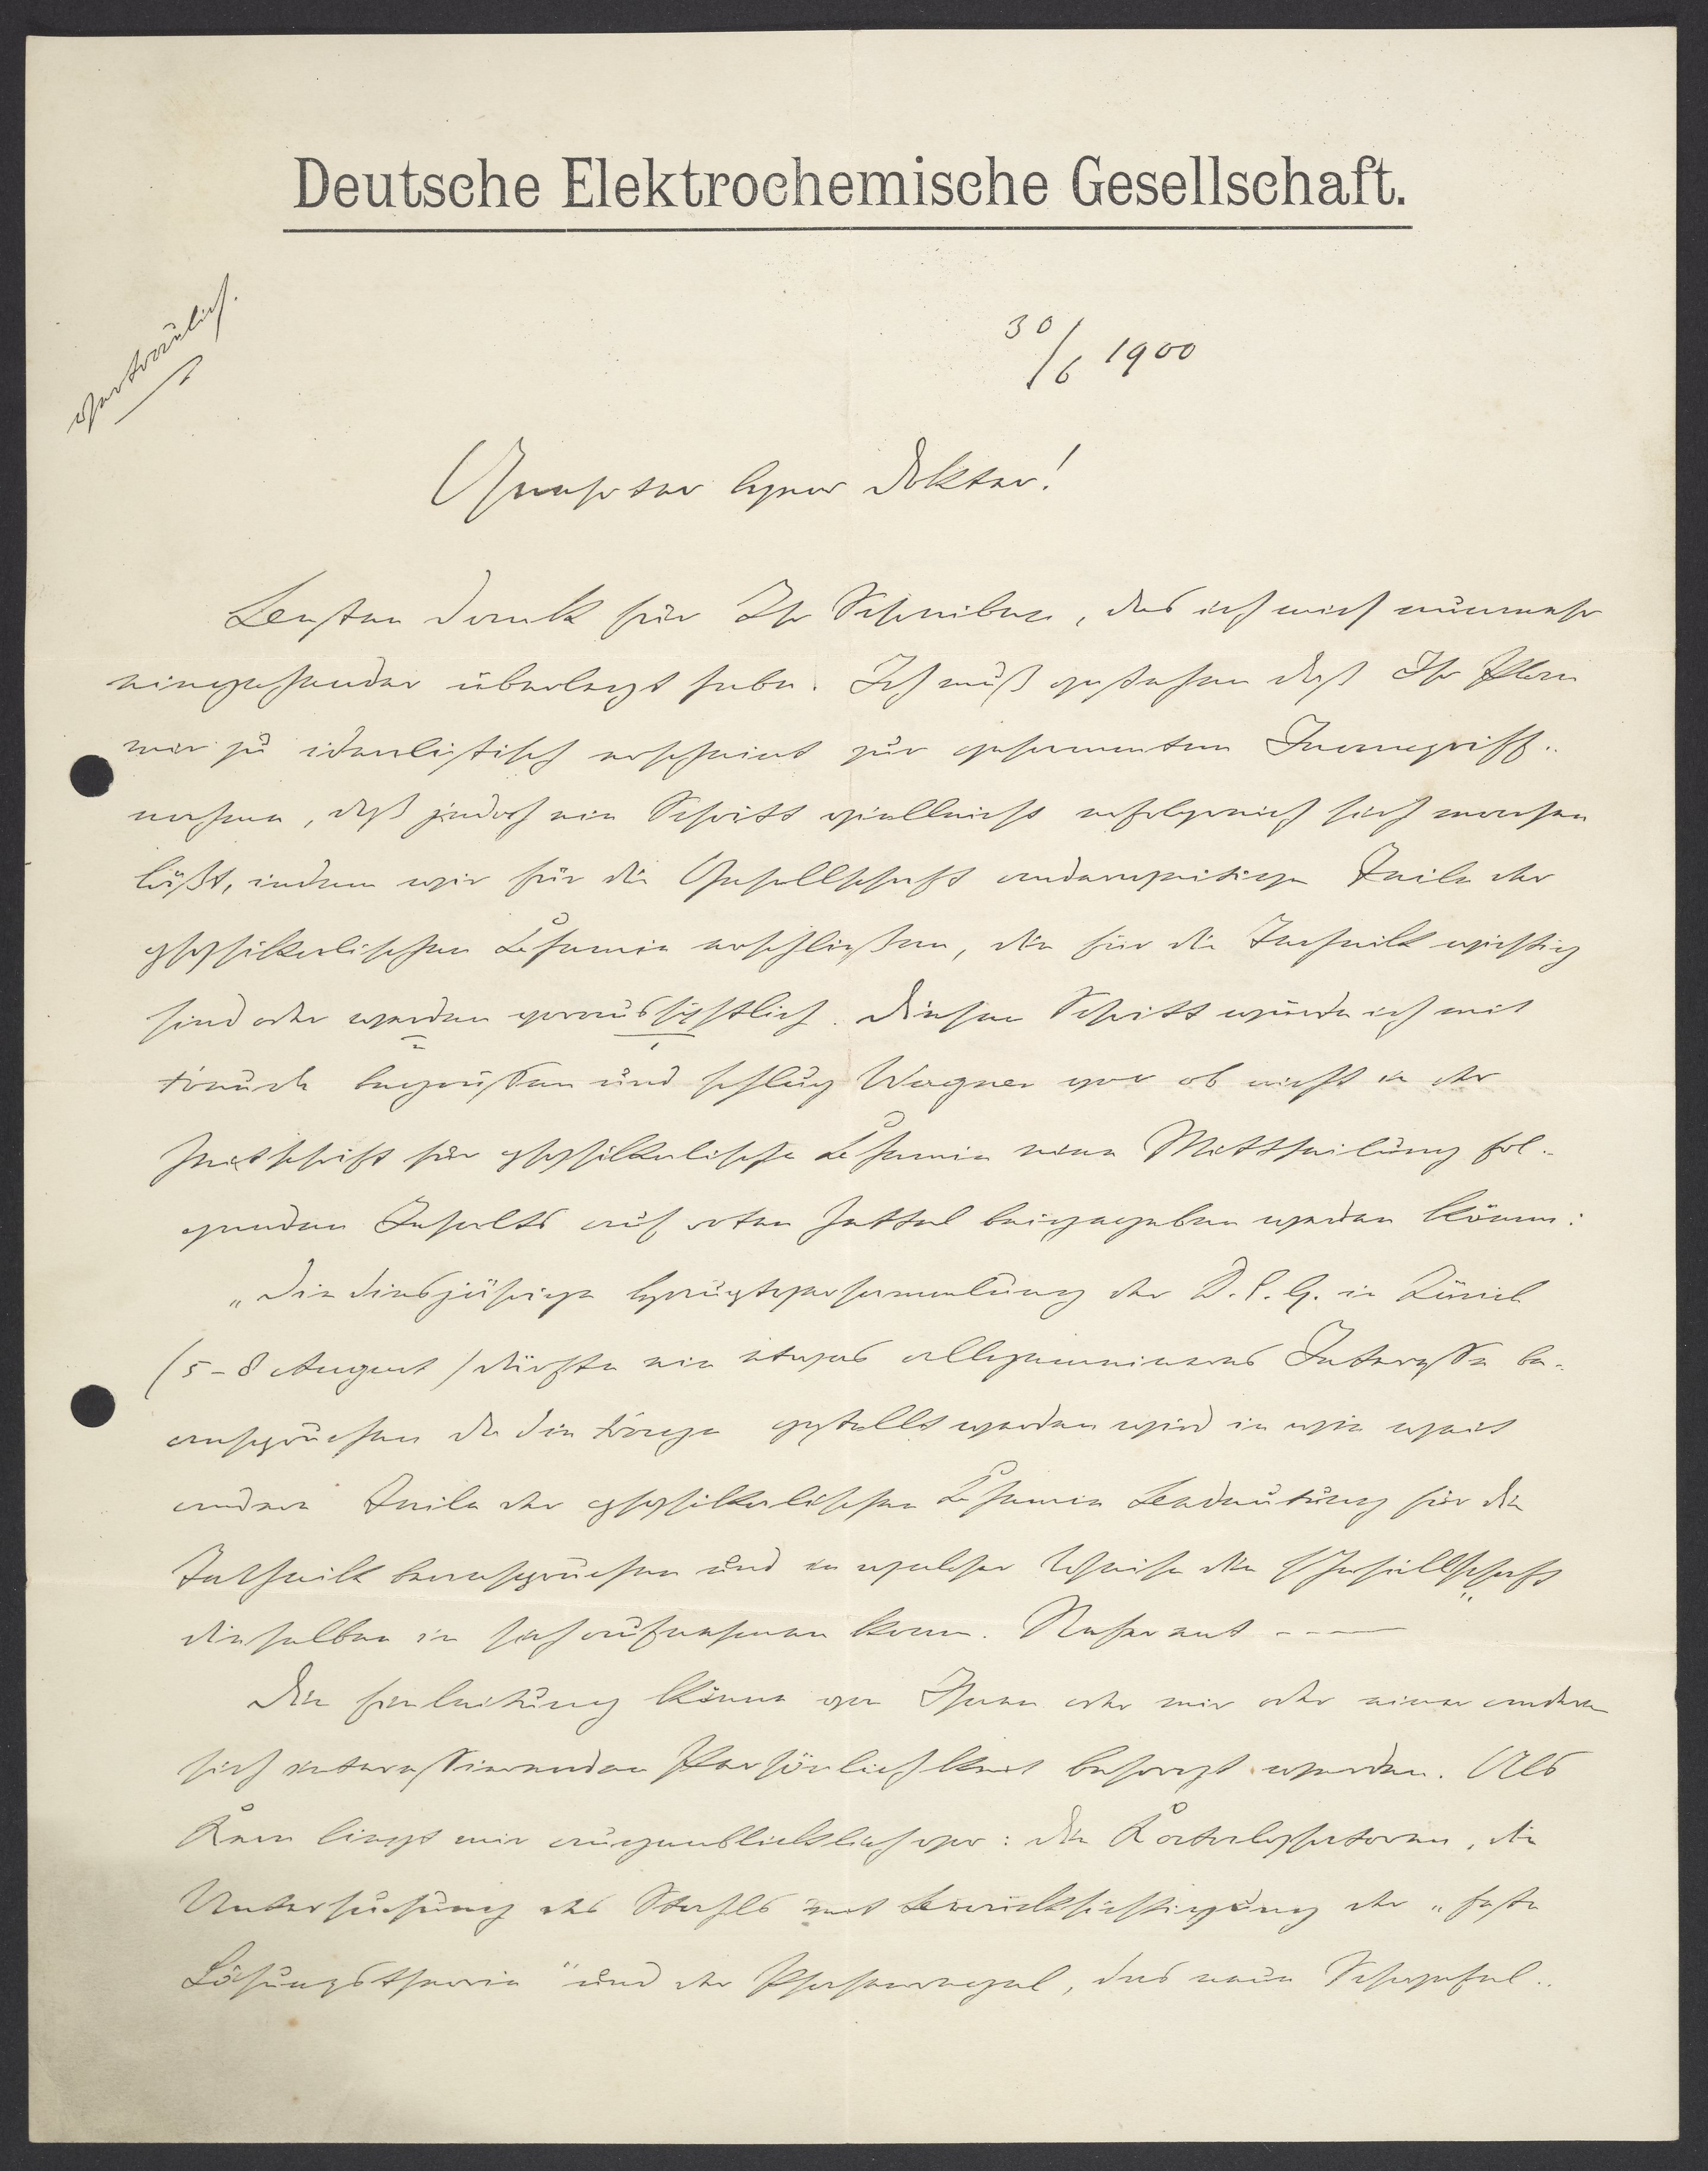 Deutsche Elektrochemische Gesellschaft.
Vertraulich.
30/6 1900
Geehrter Herr Doktor!
Besten Dank für Ihr Schreiben, das ich mich nunmehr
eingehender überlegt habe. Ich muß gestehen daß Ihr Plan
mir zu idealistisch erscheint zur gesammten Inangriff-
nahme, daß jedoch ein Schritt vielleicht erfolgreich sich machen
läßt, indem wir für die Gesellschaft anderweitige Teile der
physikalischen Chemie erschließen, die für die Technik wichtig
sind oder werden voraussichtlich. Diesen Schritt würde ich mit
Freude begrüssen und schlug Wagner vor ob nicht in der
Zeitschrift für physikalische Chemie eine Mittheilung fol-
genden Inhalts auf roten Zettel beigegeben werden könne:
„Die diesjährige Hauptversammlung der D. E. G. in Zürich
(5-8 August) dürfte ein etwas allgemeineres Interesse be-
anspruchen da die Frage gestellt werden wird in wie weit
andere Teile der physikalischen Chemie Bedeutung für die
Technik beanspruchen und in welcher Weise die Gesellschaft
dieselben in sich aufnehmen kann. Referent ----
Die Einleitung könne von Ihnen oder mir oder einer andern
sich interessierenden Persönlichkeit besorgt werden. Als
Kern liegt mir augenblicklich vor: die Katalysatoren, die
Untersuchung des Stahls mit Berücksichtigung der „feste
Lösungstheorie" und der Phasenregel, das neue Schwefel-